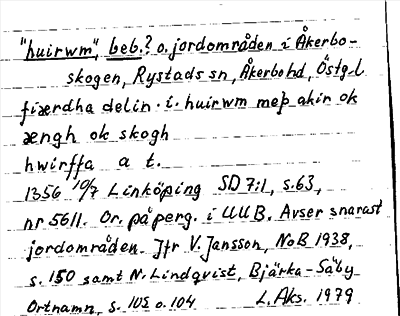 "huirwm", beb.? o. jordområden i Åkerbo-
skogen, Rystads sn, Åkerbo hd, Östg.l
fiærdha delin · i · huirwm meþ akir ok
ængh ok skogh
hwirffa a t.
1356 10/7 Linköping SD 7:1, s.63,
nr 5611. Or. på perg. i UUB. Avser snarast
jordområden. Jfr V. Jansson, NoB 1938,
s. 150 samt N. Lindqvist, Bjärka-Säby
Ortnamn, s. 102 o. 104 L. Aks. 1979